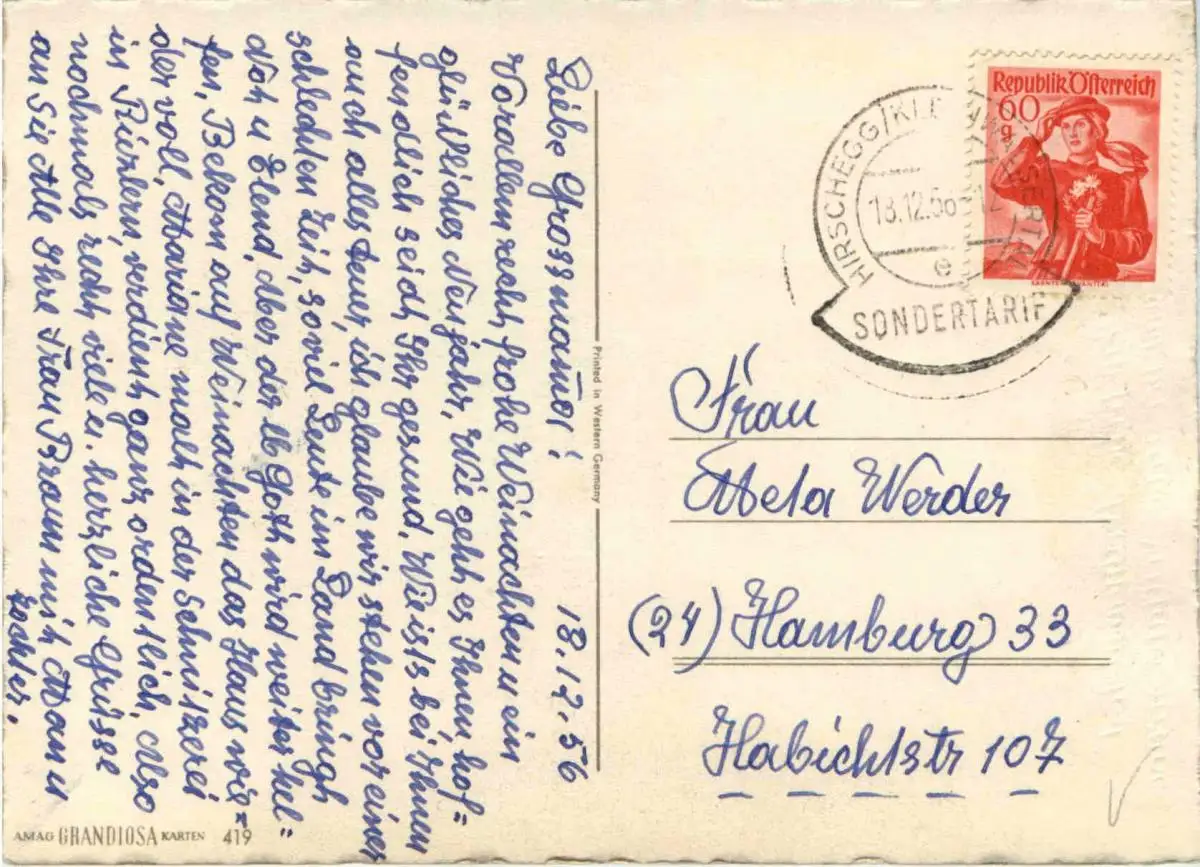 Liebe Grossmamer! 18.12.56
Vorallem recht frohe Weinachten u ein
glückliches Neujahr, Wie geht es Ihnen hof=
fendlich seid Ihr gesund. Wie ists bei Ihnen
auch alles teuer, ich glaube wir stehen vor einer
schlechten Zeit, soviel Leute im Land bringt
Noth u Elend, Aber der lb Gott wird weiter hel=
fen, Bekom auf Weinachten das Haus wie=
der voll, Mariane noch in der Schnitzerei
in Riezlern, verdient ganz ordentlich, Also
nochmals recht viele u. herzliche Grüsse
an Sie Alle Ihre Frau Braun mit Man u
Tochter.
AMAG GRANDIOSA KARTEN 419
Printed in Western Germany
Republik Österreich
60
g
HIRSCHEGG/KLEINWALSERTAL
18.12.56
e
SONDERTARIF
Frau
Meta Werder
(24) Hamburg 33
Habichtstr 107